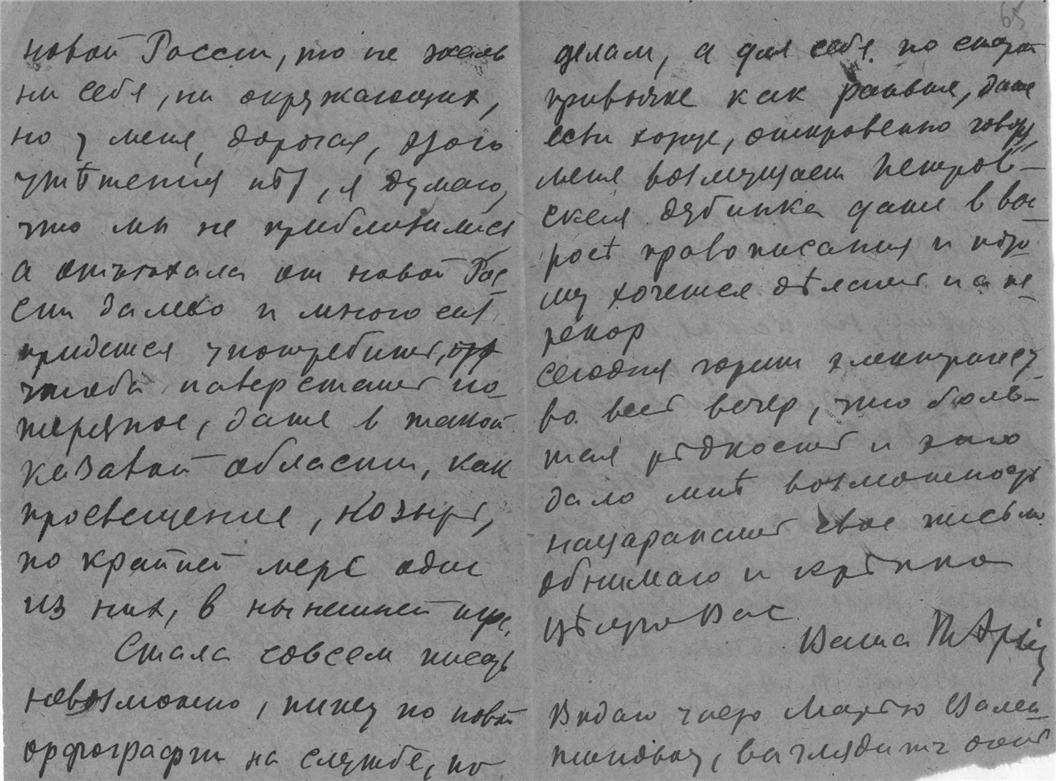 новой России, то не жаль
ни себя, ни окружающих,
но у меня, дорогая, этого
утѣшения нѣт, я думаю,
что мы не приблизились
а отъехала от новой Рос
сии далеко и много сил
придется употребить,
чтобы наверстать по-
терянное, даже в такой
казовой области, как
просвещение, козырь,
по крайней мере один
из них, в нынешней игре.
Стала совсем писать
невозможно, пишу по новой
орфографии на службе, по
65
делам, а для себя по старой
привычке как раньше, даже
если хотите, откровенно говоря
меня возмущает Петров-
ская дубинка даже в воп-
росѣ правописания и пото
му хочется дѣлать на пе-
рекор
сегодня горит электричест
во весь вечер, что боль-
шая рѣдкость и это
дало мнѣ возможность
нацарапать свое письмо.
Обнимаю и крѣпко
Цѣлую Вас
Ваша
Видаю часто Марью Вален
тиновну, выглядит очень